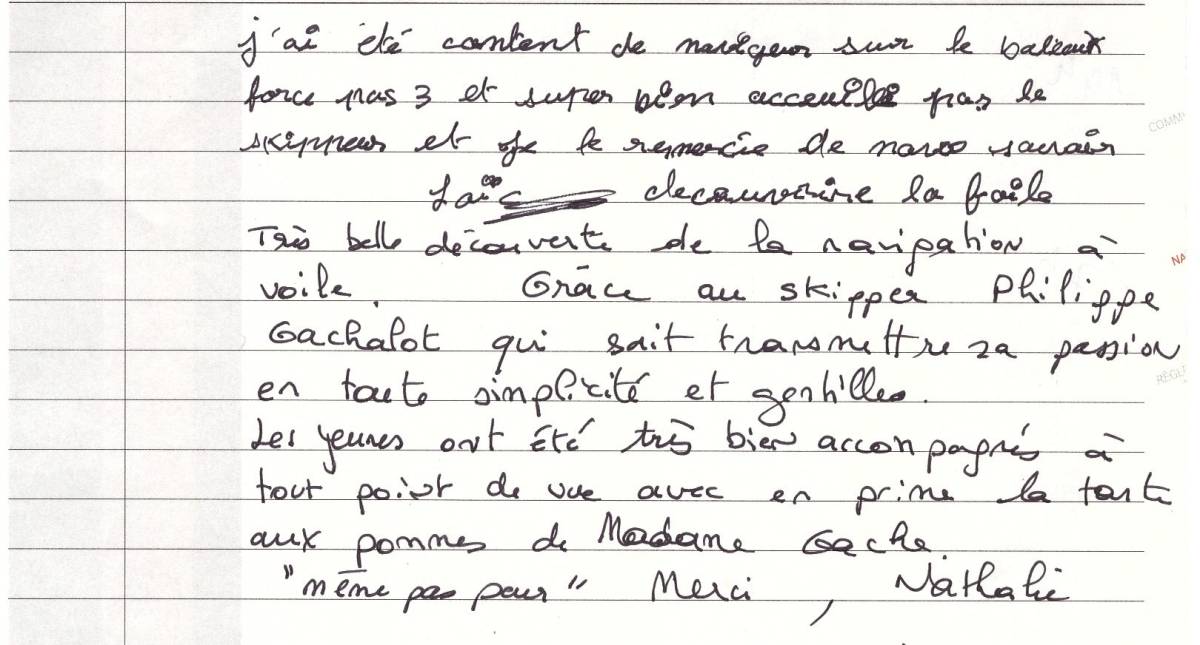 j'ai été content de naviguer sur le bateaux
force pas 3 et super bien acceuille par le
skippeur et je le remercie de nous savoir
Loïc decouvrire la foile
Très belle découverte de la navigation à
voile. Grâce au skipper Philippe
Gachalot qui sait transmettre sa passion
en toute simplicité et gentilles.
Les jeunes ont été très bien accompagnés à
tout point de vue avec en prime la tarte
aux pommes de Madame Gache.
"même pas peur" Merci, Nathalie
COMM
NA
RÉGL